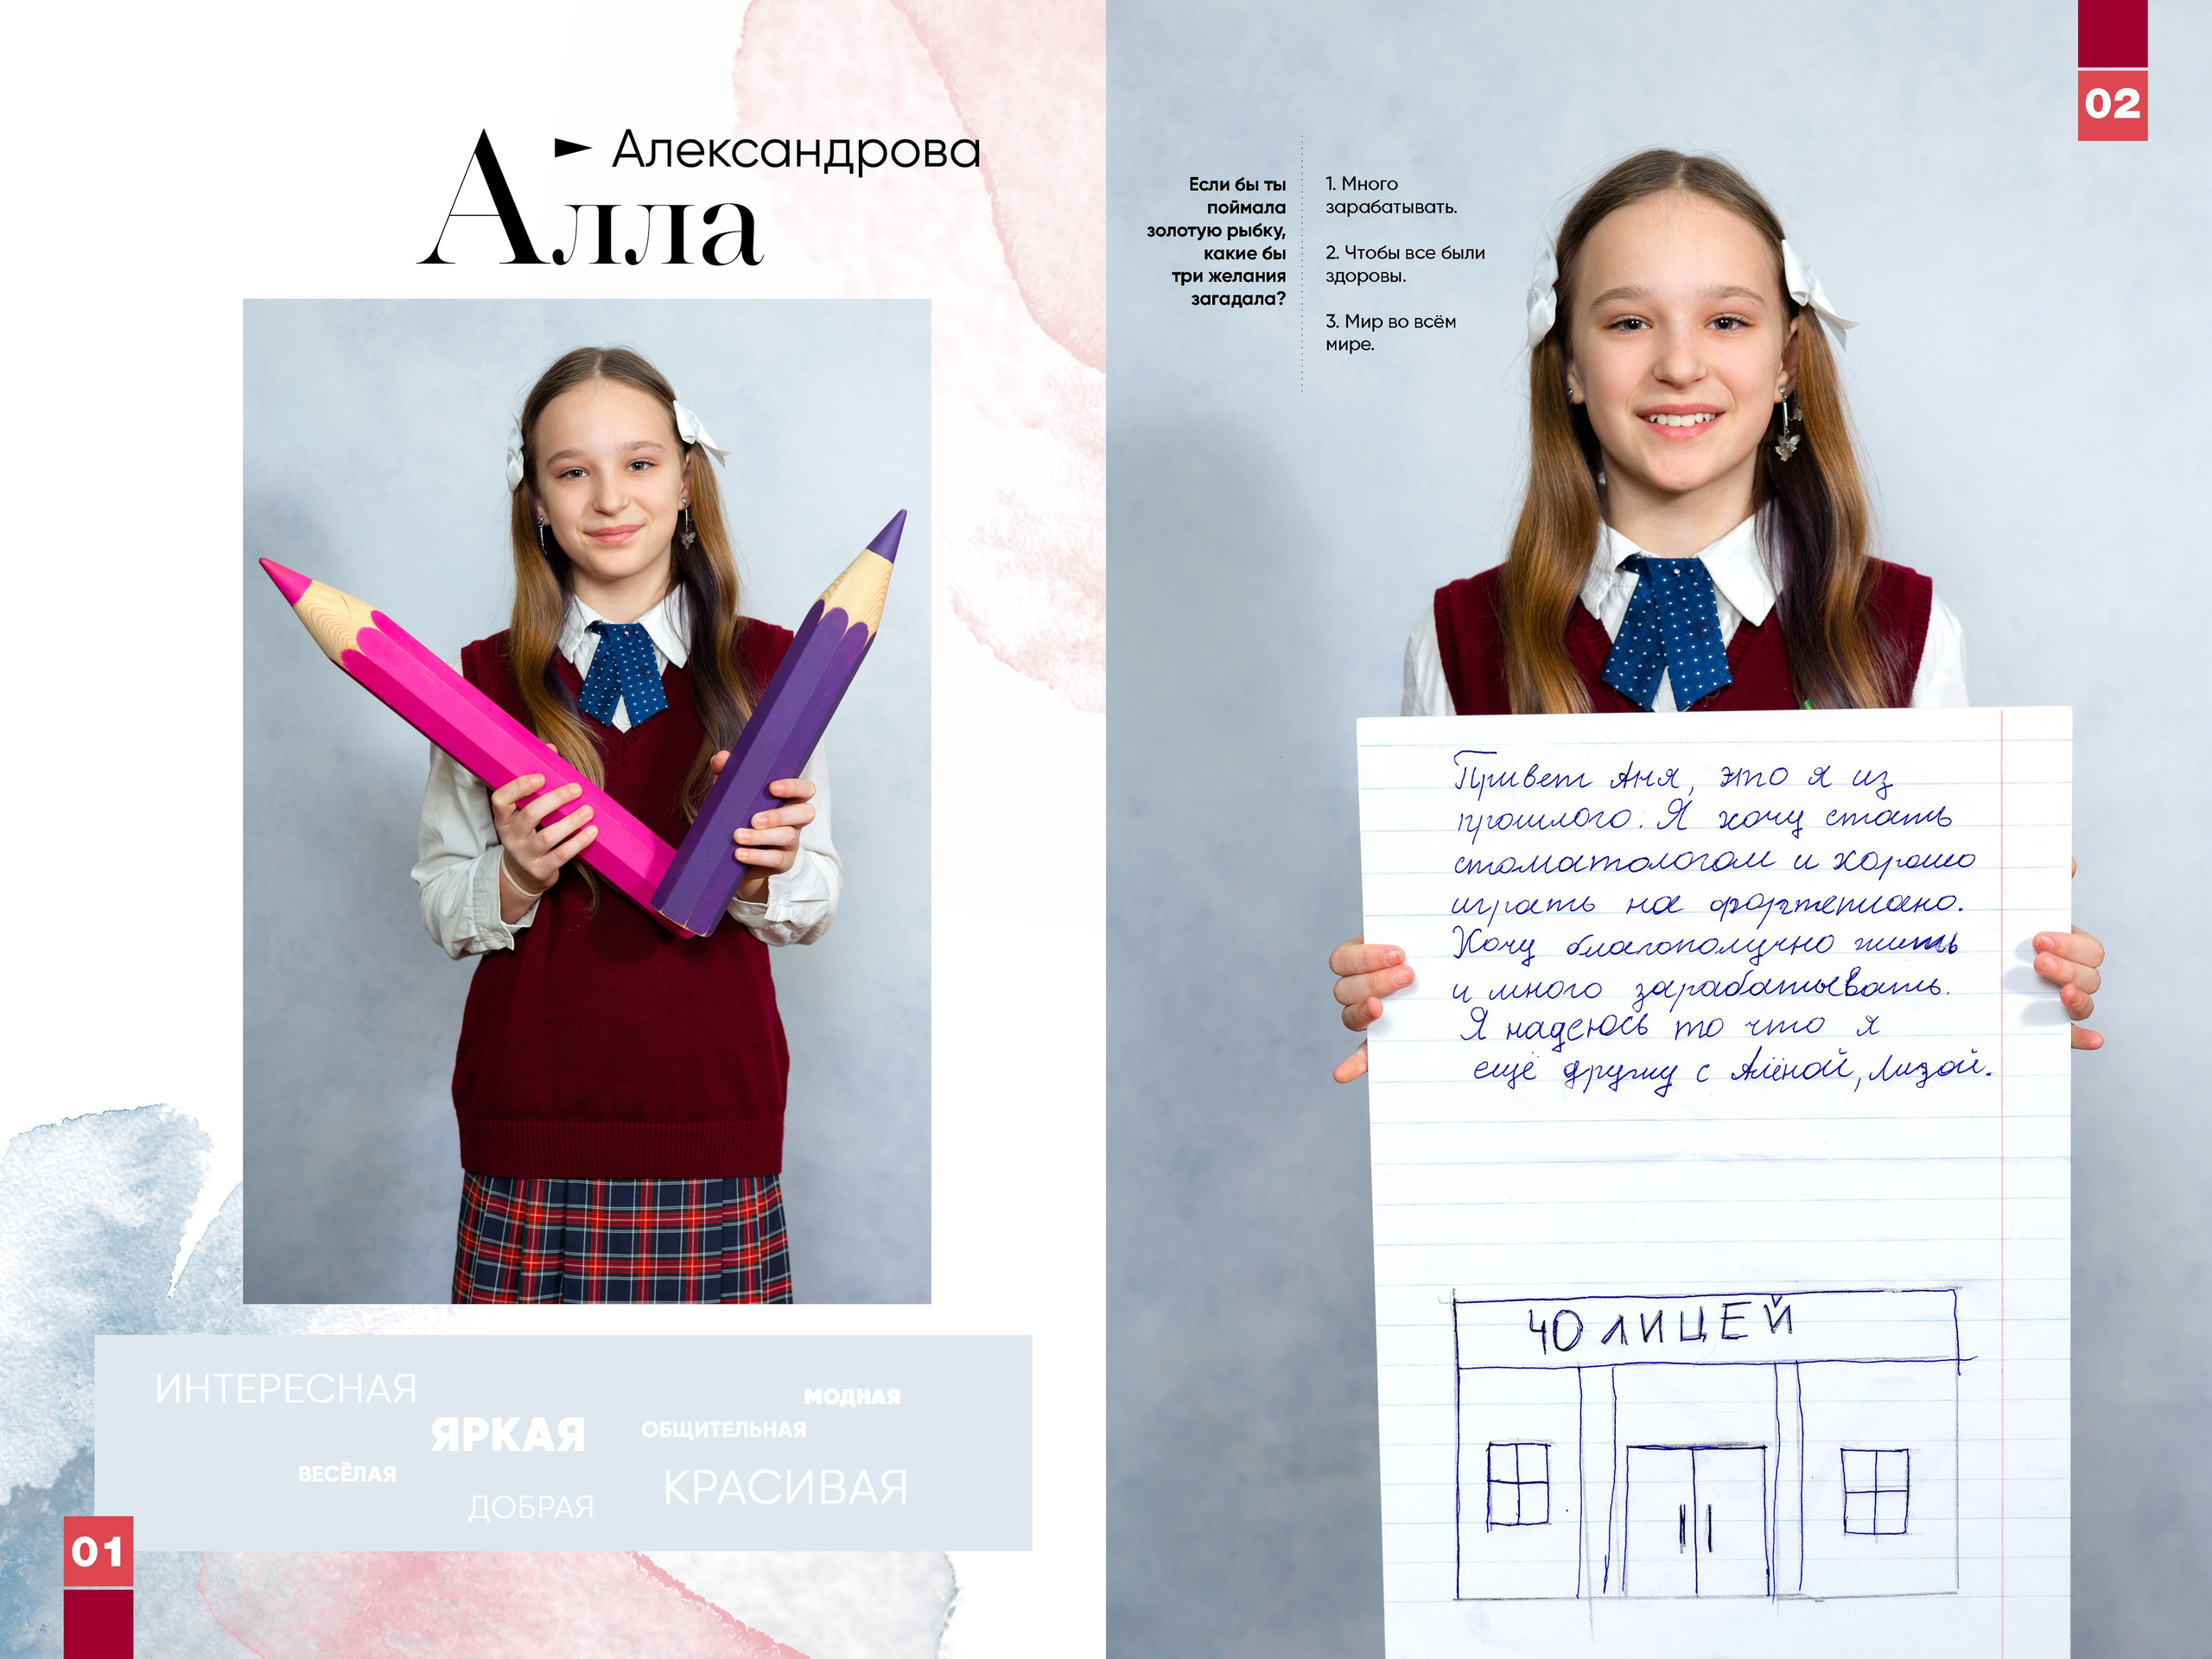 Александрова
Алла
ИНТЕРЕСНАЯ
МОДНАЯ
ЯРКАЯ
ОБЩИТЕЛЬНАЯ
ВЕСЁЛАЯ
КРАСИВАЯ
ДОБРАЯ
01
02
Если бы ты
поймала
золотую рыбку,
какие бы
три желания
загадала?
1. Много
зарабатывать.
2. Чтобы все были
здоровы.
3. Мир во всём
мире.
Привет Аня, это я из
прошлого. Я хочу стать
стоматологом и хорошо
играть на фортепиано.
Хочу благополучно жить
и много зарабатывать.
Я надеюсь то что я
ещё дружу с Алёной, Лизой.
40 ЛИЦЕЙ